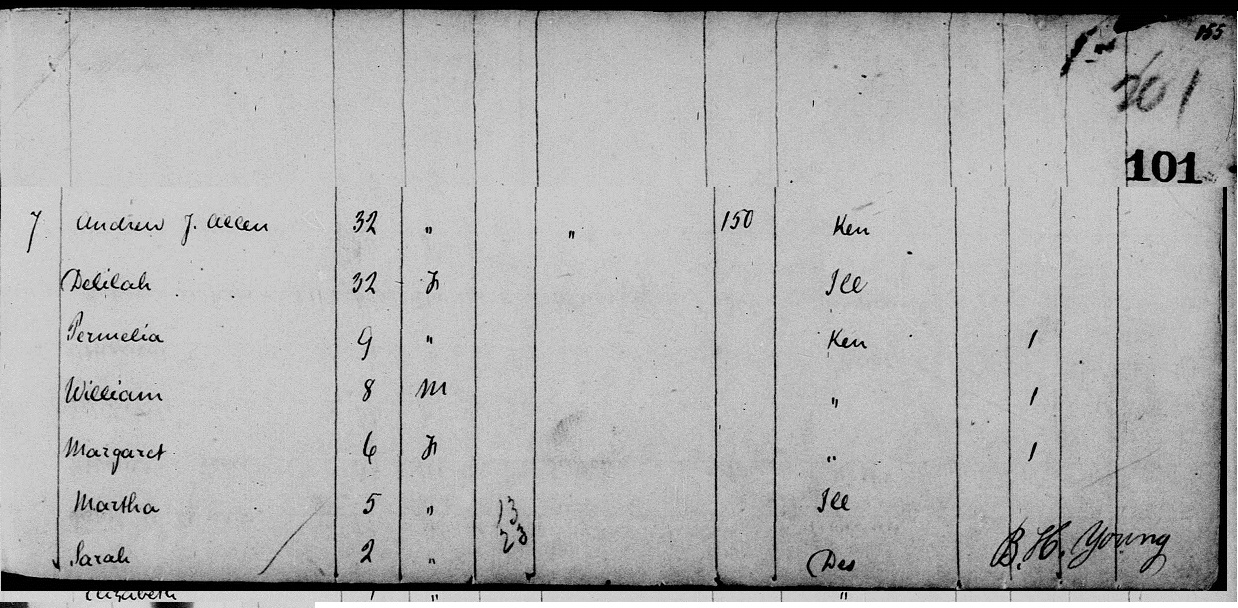 155
201
101
7 Andrew J. Allen 32 " " 150 Ken
Delilah 32 F Ill
Permelia 9 " Ken 1
William 8 M " 1
Margaret 6 F " 1
Martha 5 " Ill
13
23
Sarah 2 " Des
B. H. Young
Elizabeth 1 " "